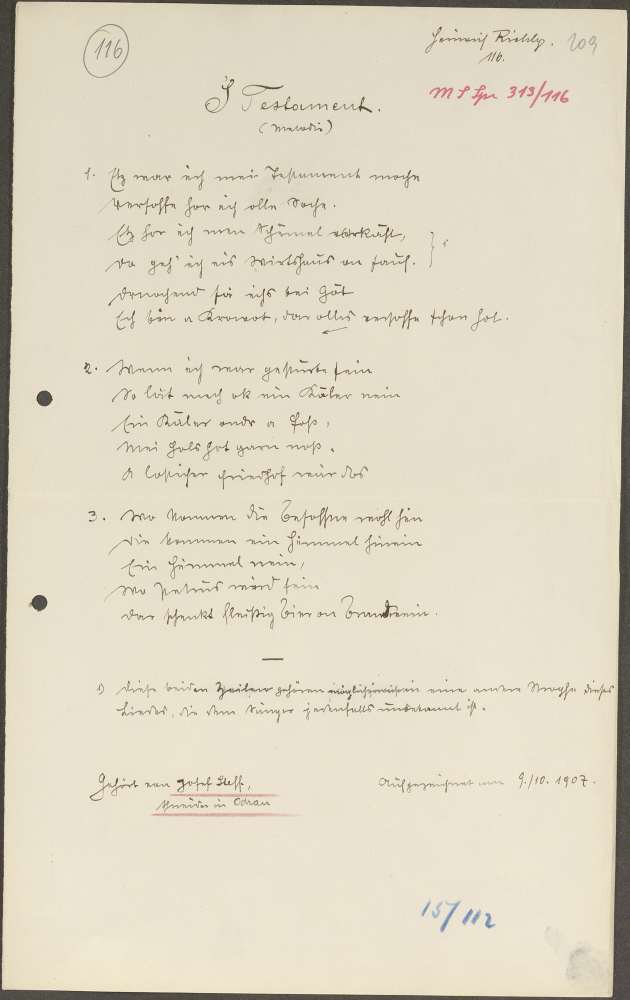 116
Heinrich Richly. 209
116.
M S Spr 313/116
'S Testament.
(Melodie)
1. Etz war ich mei Testament moche
Versoffe hor ich olle Soche.
Etz hor ich men Schimel verkäft,
Do geh' ich eis Wirtshaus on sauf.
Drnochend sä ichs bei Gôt
Ich bin a Krowot, dar olles versoffe schon hot.
2. Wenn ich war gestorbe sein
So läit mech ok ein Käler nein
Ein Käler ondr a Foss,
Mei Hols hot garn noss.
A losticher Friedhof wär dos
3. Wo kommen die Besoffne wohl hin
Die kommen ein Himmel hinein
Ein Himmel nein,
Wo Petrus wird sein
Dar schenkt fleißig Bier on Brandwein.
1) Diese beiden Zeilen gehören möglicherweise in eine andere Strophe dieses
Liedes, die dem Sänger jedenfalls unbekannt ist.
Gehört von Josef Steff,
Schneider in Odrau
Aufgezeichnet am 9./10. 1907.
15/112